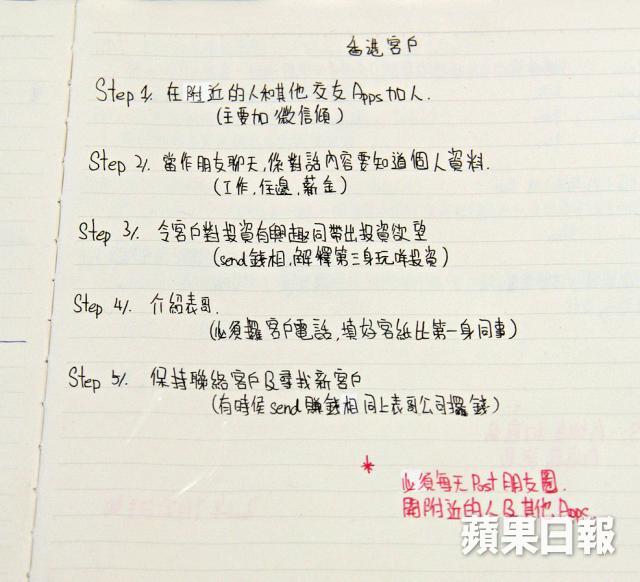 香港客戶
Step 1/. 在附近的人和其他交友Apps加人.
(主要加微信傾)
Step 2/. 當作朋友聊天,係對話內容要知道個人資料.
(工作,住邊,薪金)
Step 3/. 令客戶對投資有興趣同帶出投資欲望
(send錢相,解釋第三身玩咩投資)
Step 4/. 介紹表哥.
(必須攞客戶電話,填好客紙比第一身同事)
Step 5/. 保持聯絡客戶及尋找新客戶
(有時侯send賺錢相同上表哥公司攞錢)
* 必須每天Post朋友圈.
開附近的人及其他Apps.
蘋果日報